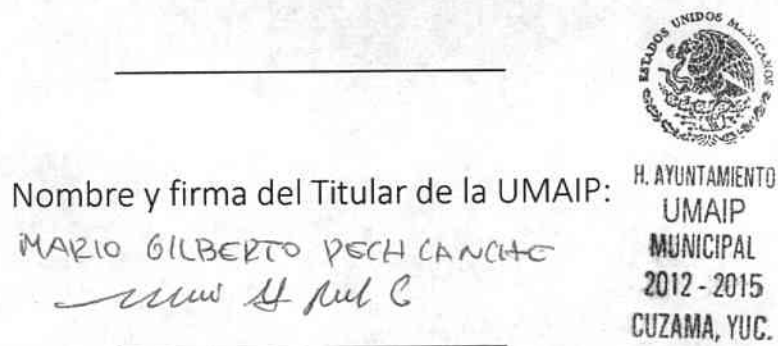 ESTADOS UNIDOS MEXICANOS
Nombre y firma del Titular de la UMAIP:
MARIO GILBERTO PECH CANCHE
H. AYUNTAMIENTO
UMAIP
MUNICIPAL
2012 - 2015
CUZAMA, YUC.